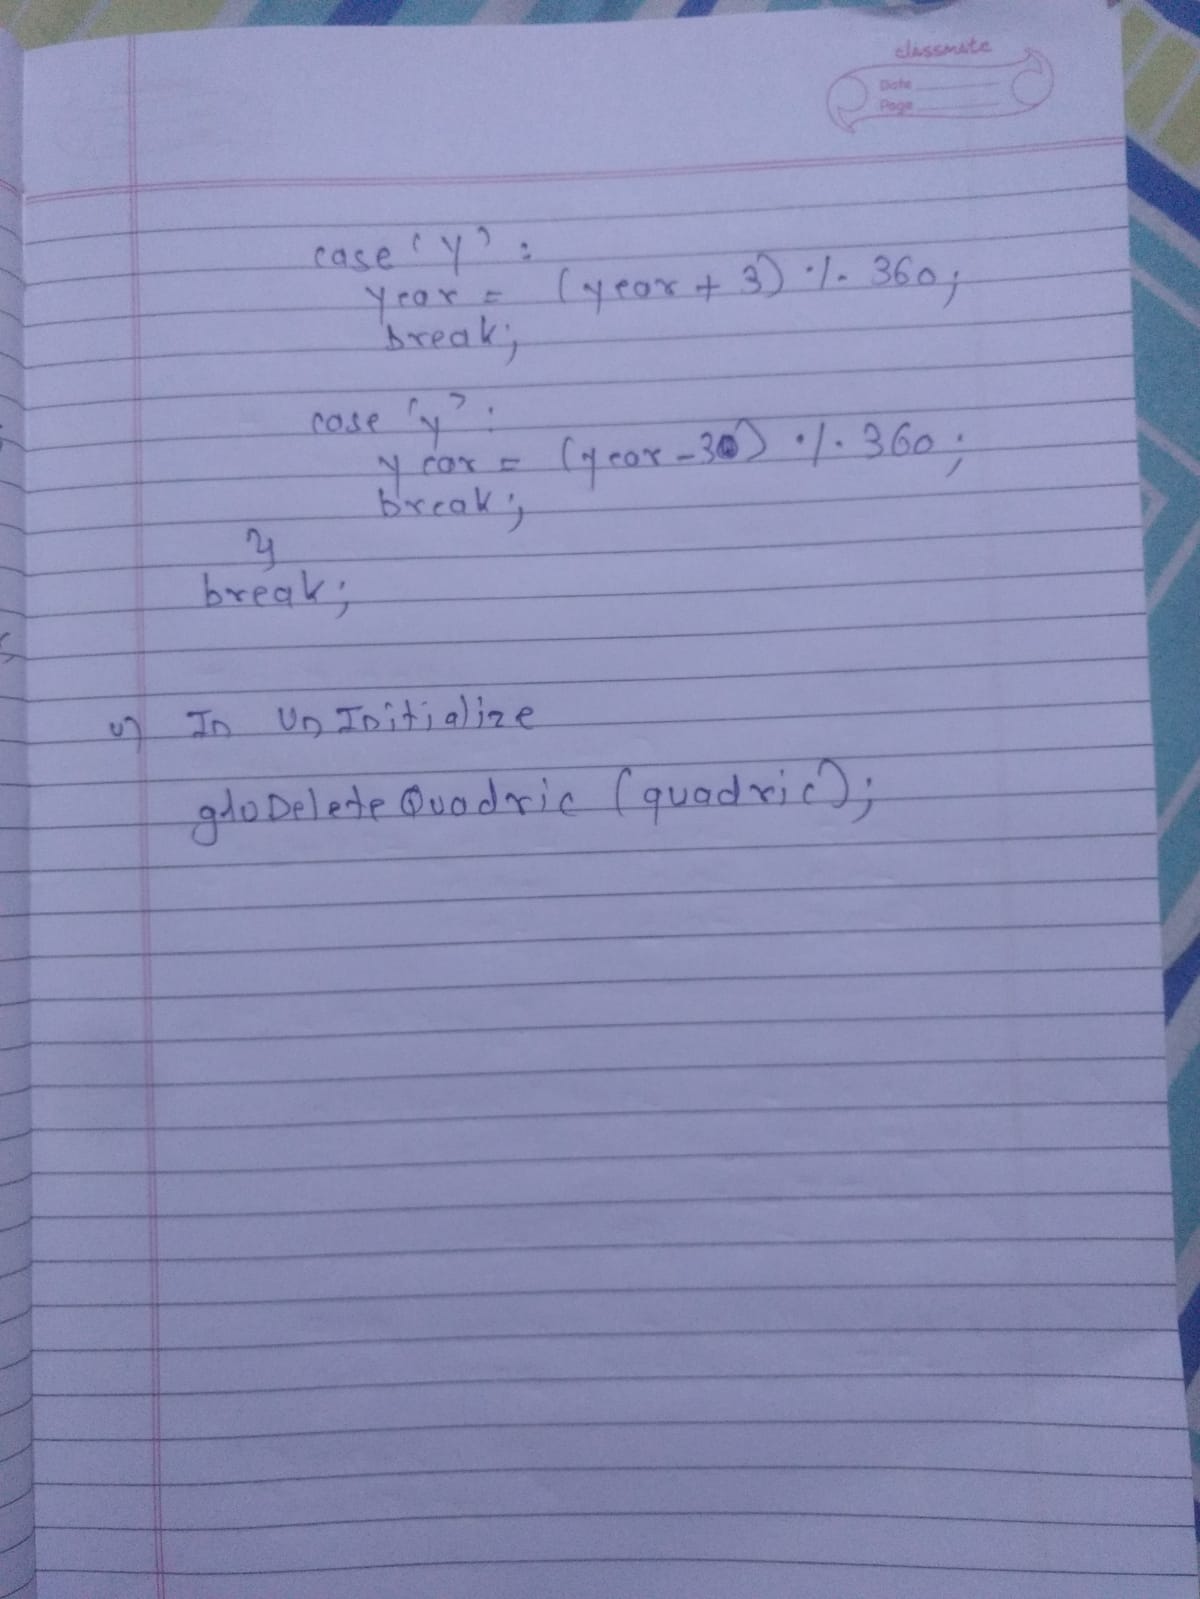 classmate
Date
Page
case 'Y' :
year = (year + 3) % 360;
break;
case 'y' :
year = (year - 3) % 360;
break;
}
break;
v) In UnInitialize
gluDeleteQuadric (quadric);